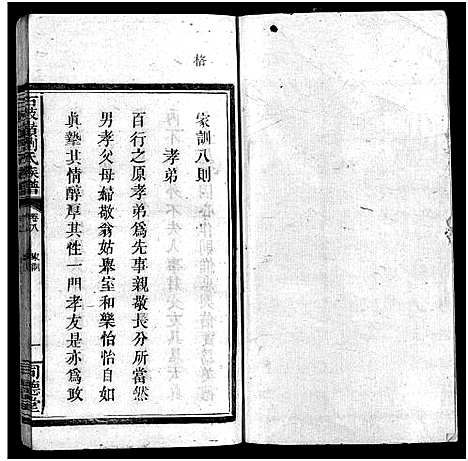 格
家訓八則
孝弟
百行之原孝弟為先事親敬長分所當然
男孝父母婦敬翁姑舉室和樂怡怡自如
真摯其情醇厚其性一門孝友是亦為政
劉氏族譜
卷八
家訓
一
同德堂